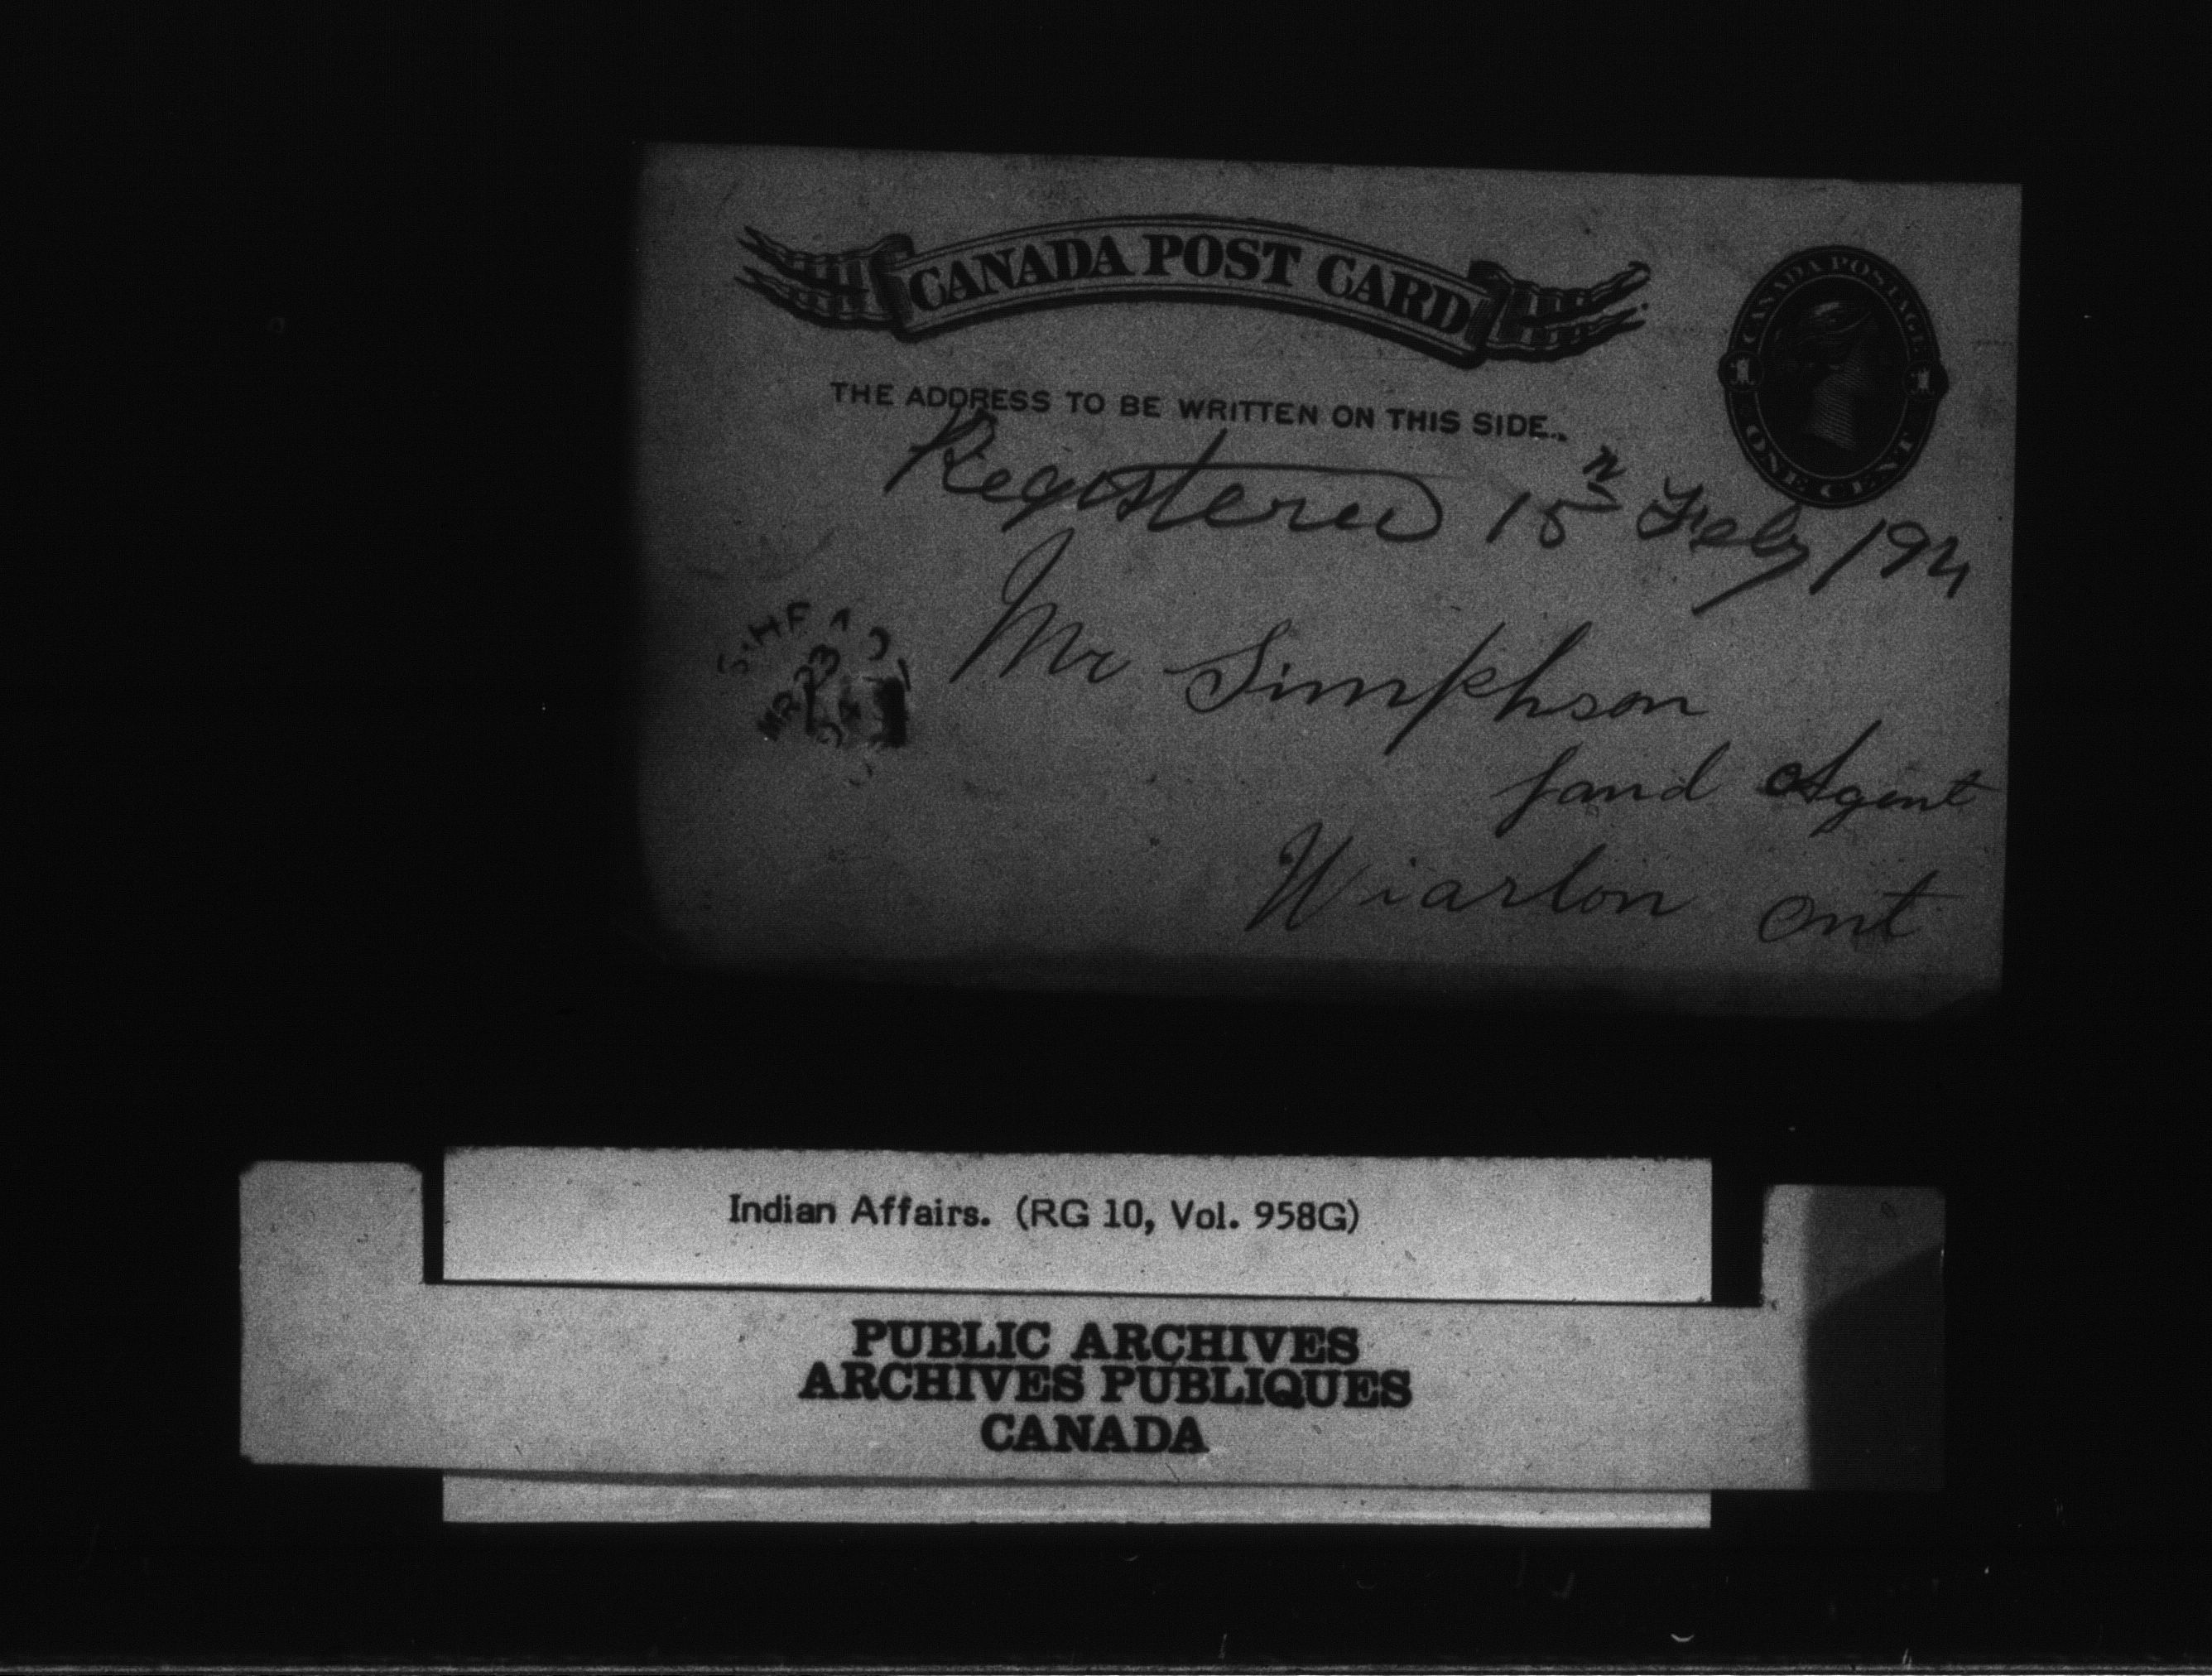 CANADA POST CARD
CANADA POSTAGE
1 1
ONE CENT
THE ADDRESS TO BE WRITTEN ON THIS SIDE.
Registered 15th Feby /94
MR 23
94
Mr Simphson
Land Agent
Wiarton Ont
Indian Affairs. (RG 10, Vol. 958G)
PUBLIC ARCHIVES
ARCHIVES PUBLIQUES
CANADA